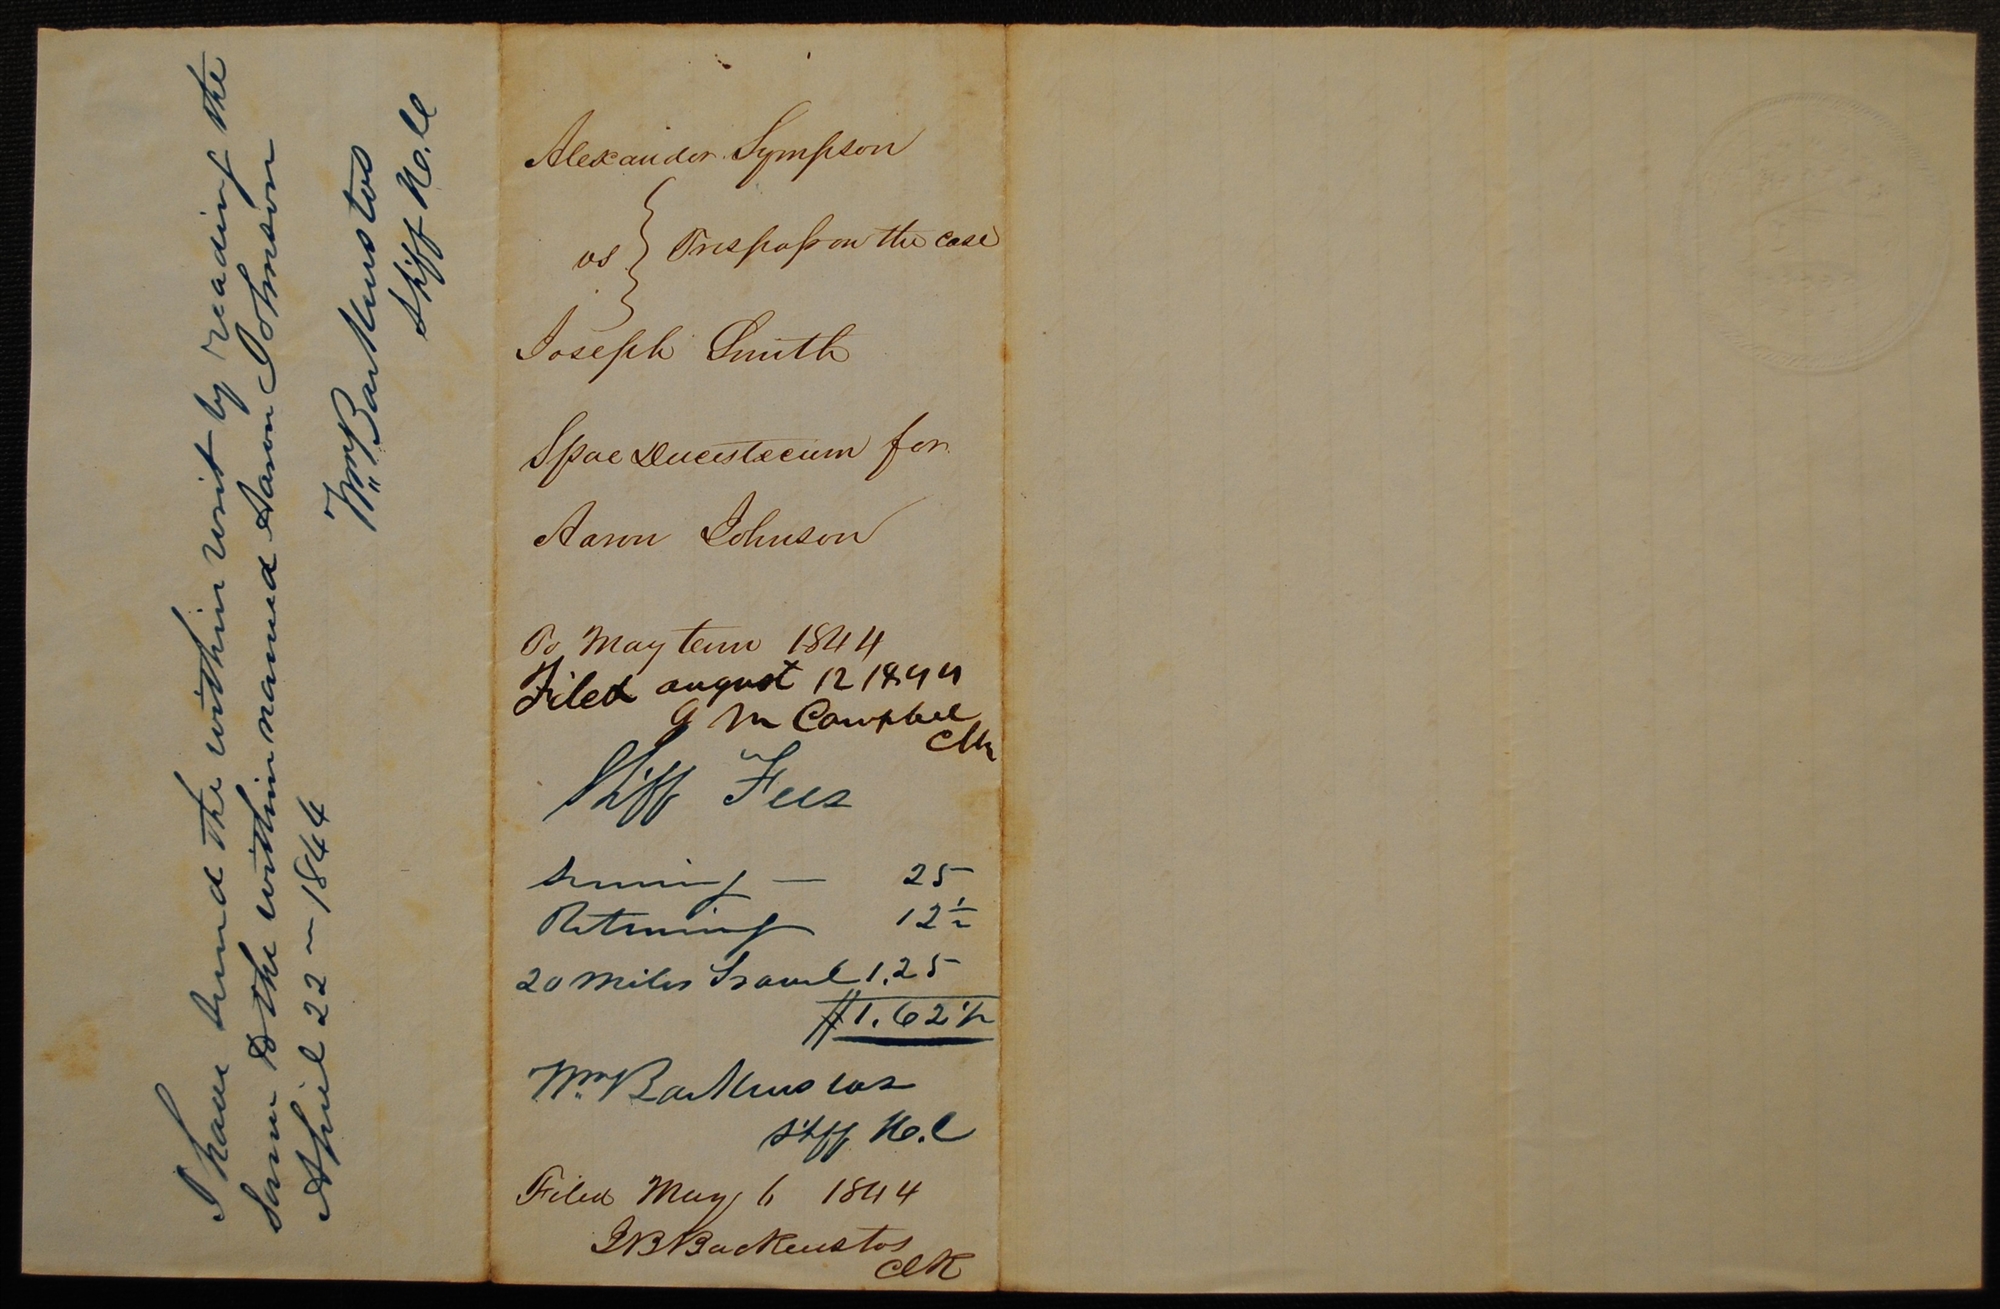 I have served the within writ by reading the
same to the within named Aaron Johnson
April 22 – 1844
Wm Backenstos
Shff H. C
Alexander Sympson
vs } Trespass on the case
Joseph Smith
Spae Duces tecum for
Aaron Johnson
To May term 1844
Filed august 12 1844
G M Campbel
Clk
Shff Fees
Serving — 25
Returning 12 1/2
20 miles Travel 1.25
$1.62 1/2
Wm Backenstos
Shff H. C
Filed May 6 1844
J B Backenstos
Clk